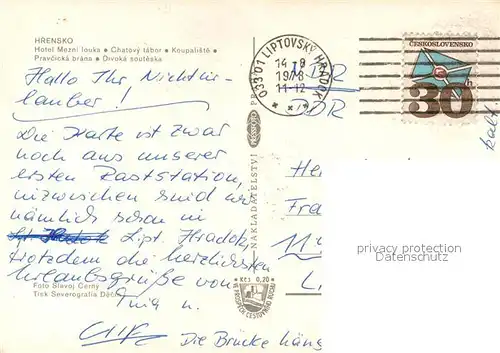 HŘENSKO
Hotel Mezní louka • Chatový tábor • Koupaliště •
Pravčická brána • Divoká soutěska
Hallo Ihr Nichtur-
lauber!
Die Karte ist zwar
noch aus unserer
ersten Raststation,
inzwischen sind wir
nämlich schon in
Lipt. Hradok,
trotzdem die herzlichsten
Urlaubsgrüße von
Foto Slavoj Černý
Tisk Severografia Děčín
u.
Die Brücke häng
PRESSFOTO
NAKLADATELSTVÍ
Kčs 0,20
VE PROSPĚCH CESTOVNÍHO RUCHU
033 01 LIPTOVSKÝ HRÁDOK
14.8
1978
11-12
ČESKOSLOVENSKO
30h
DDR
DDR
He
Fra
11
L
privacy protection
Datenschutz